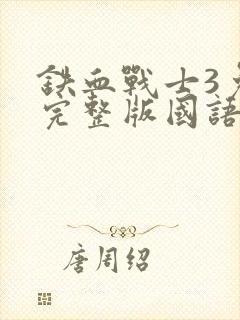 鉄血戰士3
完整版國語
唐周绍